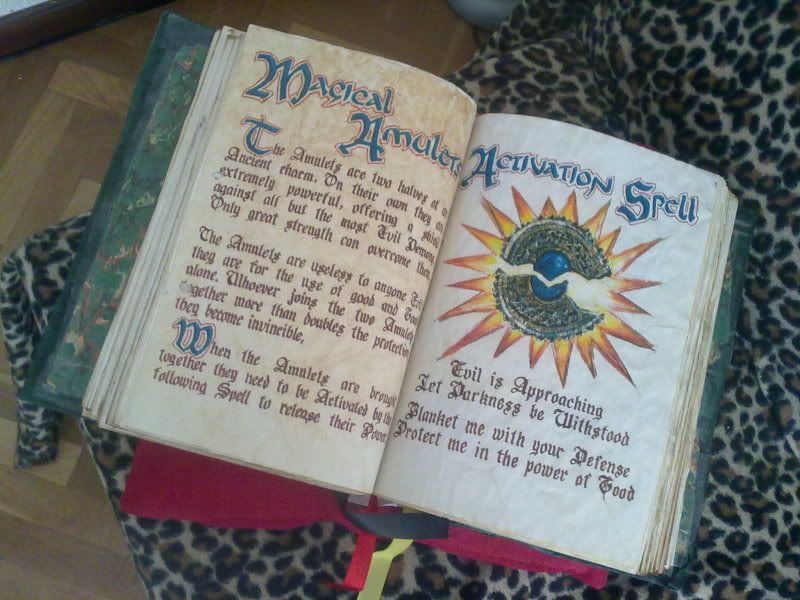 Magical
Amulets
The Amulets are two halves of an
Ancient charm. On their own they are
extremely powerful, offering a shield
against all but the most Evil Demons
Only great strength can overcome them
The Amulets are useless to anyone Evil
they are for the use of good and Good
alone. Whoever joins the two Amulets
together more than doubles the protection
they become invincible,
When the Amulets are brought
together they need to be Activated by the
following Spell to release their Power
Activation Spell
Evil is Approaching
Let Darkness be Withstood
Blanket me with your Defense
Protect me in the power of Good